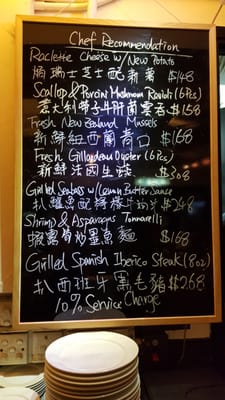 Chef Recommendation
Raclette Cheese w/ New Potato
焗瑞士芝士配新薯 $148
Scallop & Porcini Mushroom Ravioli (6 Pcs)
意大利帶子牛肝菌雲吞 $158
Fresh New Zealand Mussels
新鮮紐西蘭青口 $168
Fresh Gillardeau Oyster (6 Pcs)
新鮮法國生蠔 $308
Grilled Seabass w/ Lemon Butter Sauce
扒鱸魚配檸檬牛油汁 $248
Shrimp & Asparagus Tonnarelli
蝦露筍炒墨魚麵 $168
Grilled Spanish Iberico Steak (8oz)
扒西班牙黑毛豬 $268
10% Service Charge